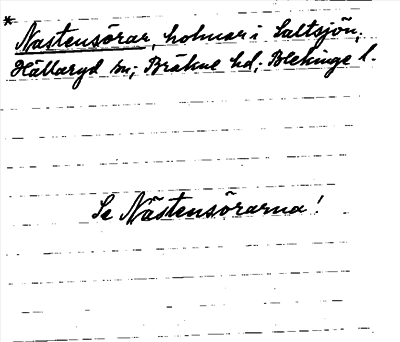 * Nastensörar, holmar i Saltsjön,
Hällaryd sn; Bräkne hd; Blekinge l.
Se Nästensörarna!